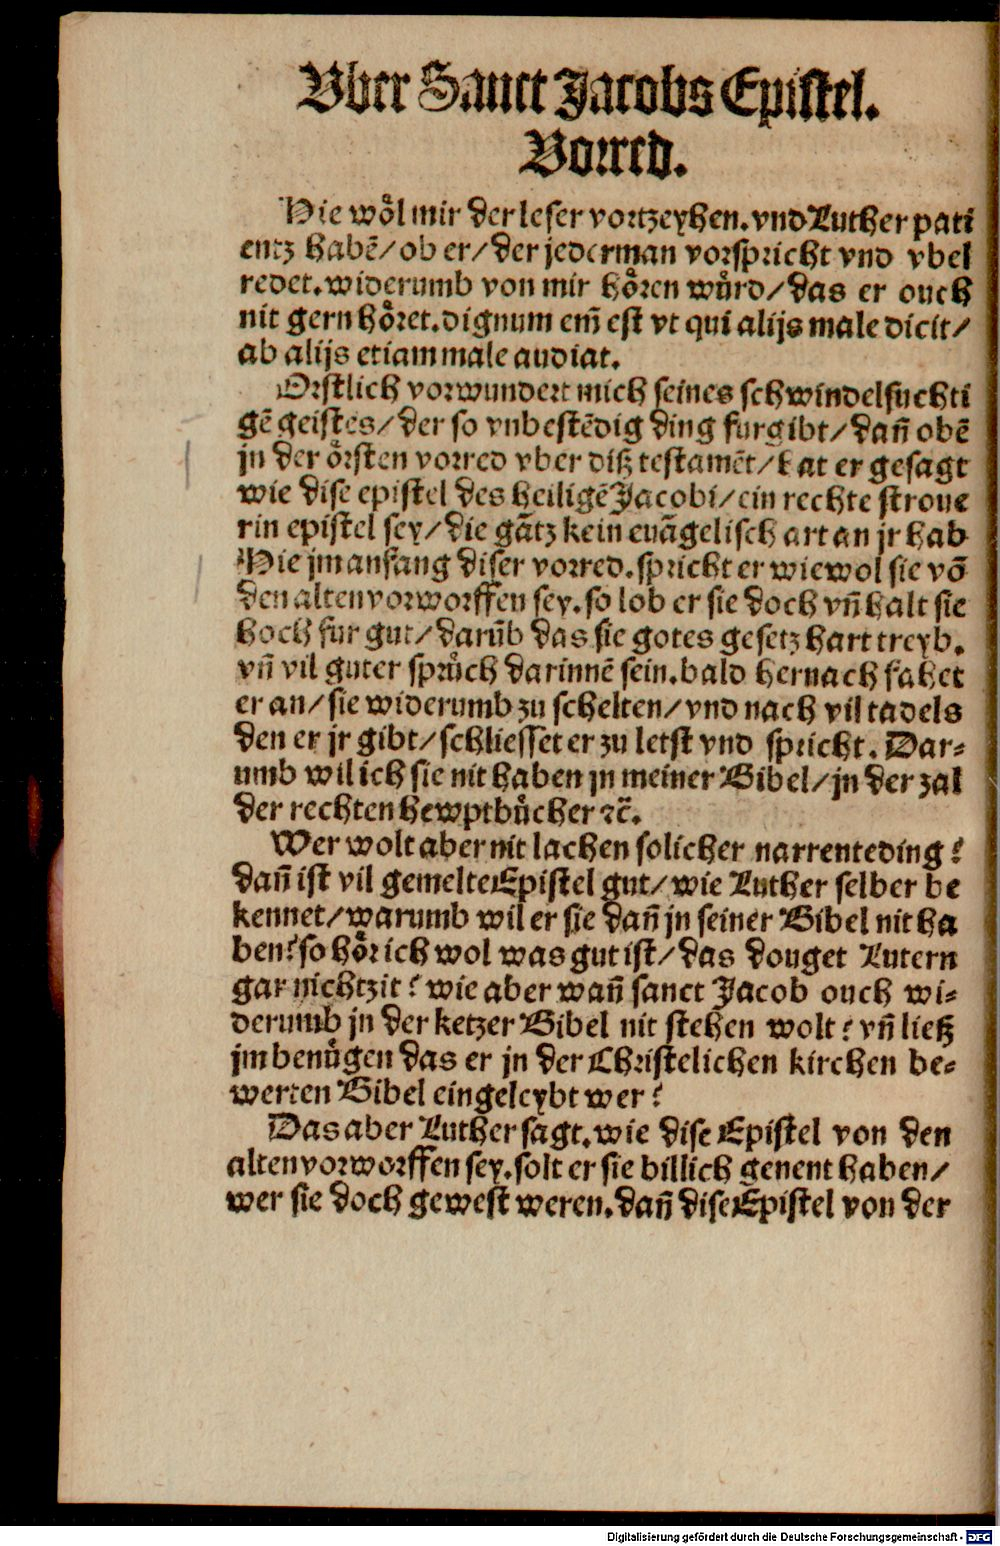 Vber Sanct Jacobs Epistel.
Vorred.
Hie woͤl mir der leser vortzeyhen. vnd Luther pati
entz habē/ ob er/ der jederman vorspricht vnd vbel
redet. widerumb von mir hoͤren wuͤrd/ das er ouch
nit gern hoͤret. dignum em̄ est vt qui alijs male dicit/
ab alijs etiam male audiat.
Orstlich vorwundert mich seines schwindelsuchti
gē geistes/ der so vnbestēdig ding furgibt/ dañ obē
jn der oͤrsten vorred vber diß testamēt/ hat er gesagt
wie dise epistel des heiligē Jacobi/ ein rechte stroue
rin epistel sey/ die gātz kein euāgelisch art an jr hab
Hie jm anfang diser vorred. spricht er wiewol sie vō
den alten vorworffen sey. so lob er sie doch vñ halt sie
hoch fur gut/ darūb das sie gotes gesetz hart treyb.
vñ vil guter spruͤch darinnē sein. bald hernach fahet
er an/ sie widerumb zu schelten/ vnd nach vil tadels
den er jr gibt/ schliesset er zu letst vnd spricht. Dar⸗
umb wil ich sie nit haben jn meiner Bibel/ jn der zal
der rechten hewptbuͤcher ꝛc̄.
Wer wolt aber nit lachen solicher narrenteding?
dañ ist vil gemelte Epistel gut/ wie Luther selber be
kennet/ warumb wil er sie dañ jn seiner Bibel nit ha
ben? so hoͤr ich wol was gut ist/ das douget Lutern
gar nichtzit? wie aber wañ sanct Jacob ouch wi⸗
derumb jn der ketzer Bibel nit stehen wolt? vñ ließ
jm benuͤgen das er jn der Christelichen kirchen be⸗
werten Bibel eingeleybt wer?
Das aber Luther sagt. wie dise Epistel von den
alten vorworffen sey. solt er sie billich genent haben/
wer sie doch gewest weren. dañ dise Epistel von der
Digitalisierung gefördert durch die Deutsche Forschungsgemeinschaft - DFG